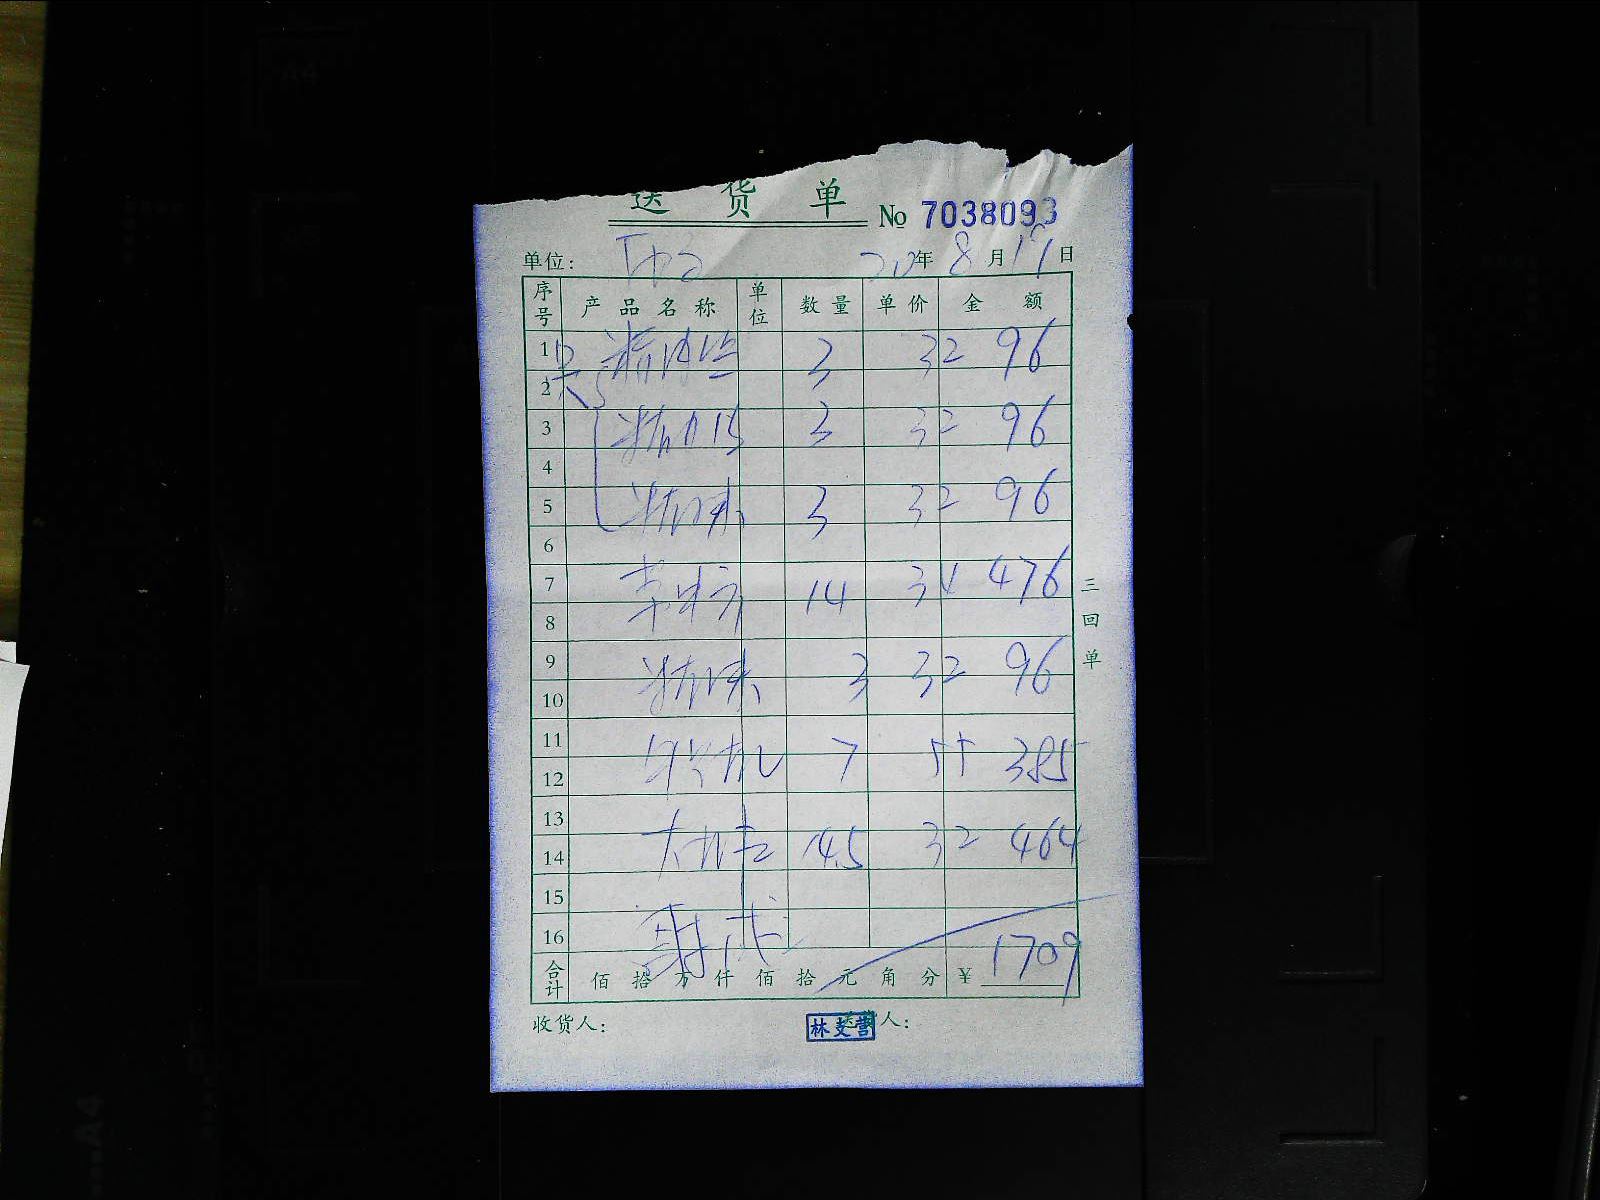 送 货 单 No 7038093
单位： 20年 8月 19日
序号 产品名称 单位 数量 单价 金额
1 精肉丝 3 32 96
2
3 精肉片 3 32 96
4
5 3 32 96
6
7 14 34 476
8
9 3 32 96
10
11 7 55 385
12
13
14 大排 14.5 32 464
15
16
合计 佰 拾 万 仟 佰 拾 元 角 分 ¥ 1709
收货人： 送货人：
林支营
三回单